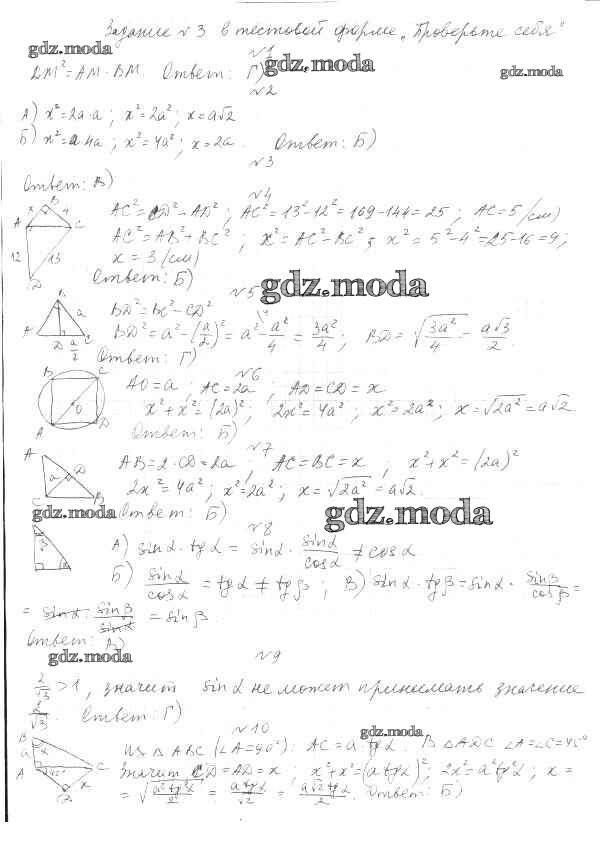 Задание №3 в тестовой форме „Проверьте себя"
gdz.moda
№1
gdz.moda
2M² = AM · BM. Ответ: Г)
gdz.moda
№2
А) x² = 2a · a ; x² = 2a² ; x = a√2
Б) x² = a · 4a ; x² = 4a² ; x = 2a. Ответ: Б)
№3
Ответ: В)
№4
AC² = CD² - AD² ; AC² = 13² - 12² = 169 - 144 = 25 ; AC = 5 (см)
AC² = AB² + BC² ; x² = AC² - BC² ; x² = 5² - 4² = 25 - 16 = 9 ;
x = 3 (см)
Ответ: Б)
A B C D x 4 12 13
№5
gdz.moda
BD² = BC² - CD²
BD² = a² - (a/2)² = a² - a²/4 = 3a²/4 ; BD = √(3a²/4) = a√3/2.
Ответ: Г)
A B C D a a/2
№6
AO = a ; AC = 2a ; AD = CD = x
x² + x² = (2a)² ; 2x² = 4a² ; x² = 2a² ; x = √2a² = a√2.
Ответ: Б)
A B C D O
№7
AB = 2 · CD = 2a , AC = BC = x ; x² + x² = (2a)²
2x² = 4a² ; x² = 2a² ; x = √2a² = a√2.
Ответ: Б)
A C B D a
gdz.moda
gdz.moda
№8
А) sinα · tgα = sinα · sinα/cosα ≠ cosα
Б) sinα/cosα = tgα ≠ tgβ ; В) sinα · tgβ = sinα · sinβ/cosβ =
= sinα · sinβ/sinα = sinβ
Ответ: В)
β α
gdz.moda
№9
2/√3 > 1 , значит sinα не может принимать значение
2/√3. Ответ: Г)
№10
gdz.moda
Из △ABC (∠A = 90°): AC = a tgα. В △ADC ∠A = ∠C = 45°
Значит CD = AD = x ; x² + x² = (a tgα)² ; 2x² = a² tg²α ; x =
= √(a² tg²α/2) = a tgα/√2 = a√2 tgα/2. Ответ: Б)
B a α A 45° C x D